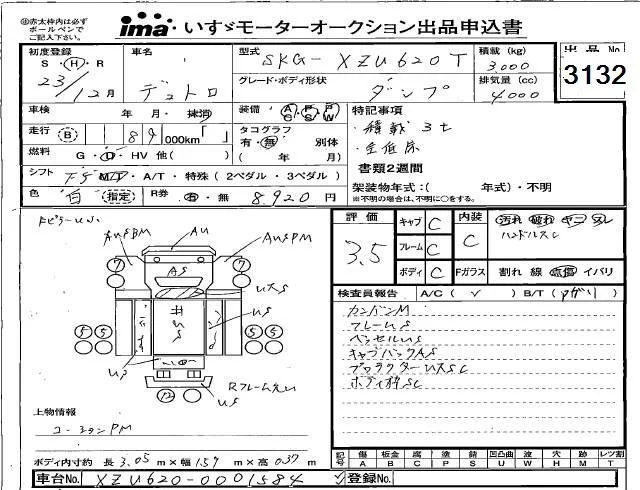 ㊟赤太枠内は必ず
ボールペンで
ご記入下さい。
ima いすゞモーターオークション出品申込書
初度登録 S・H・R 23/12月
車名 デュトロ
型式 SKG-XZU620T
積載 (kg) 3,000
出品No 3132
グレード・ボディ形状 ダンプ
排気量 (cc) 4,000
車検 年・月・抹消
装備 A/C P/S P/W
特記事項
・積載 3t
・全低床
走行 B 89,000km「 」
タコグラフ 有・無 別体 ( 年 月)
燃料 G・D・HV 他( )
書類2週間
シフト F5 MT・A/T・特殊 (2ペダル・3ペダル)
架装物年式:( 年式)・不明
※不明の場合は、不明に○をする。
色 白 (指定) R券 有・無 8920円
評価 3.5
キャブ C
フレーム C
ボディ C
内装 C
汚れ 破れ ヤニ スレ
ハンドルスレ
Fガラス 割れ 線 点傷 イバリ
AUSBM
AU
AUSPM
7
7
AS
US
5 5
5 5
US
12
US
検査員報告 A/C( ✓ ) B/T( アガリ )
カンバンM
フレームS
ベッセルUS
キャブバックAS
プロテクターUXSC
ボディ枠SC
上物情報
コーションPM
ボディ内寸約 長 3.05 m×幅 1.59 m×高 0.37 m
記号 傷 A 板金 B 腐 C 塗 P 錆 S 凹凸曲 U 波 W 穴 H 跡 M レツ割 T
車台No. XZU620-0001584
登録No.